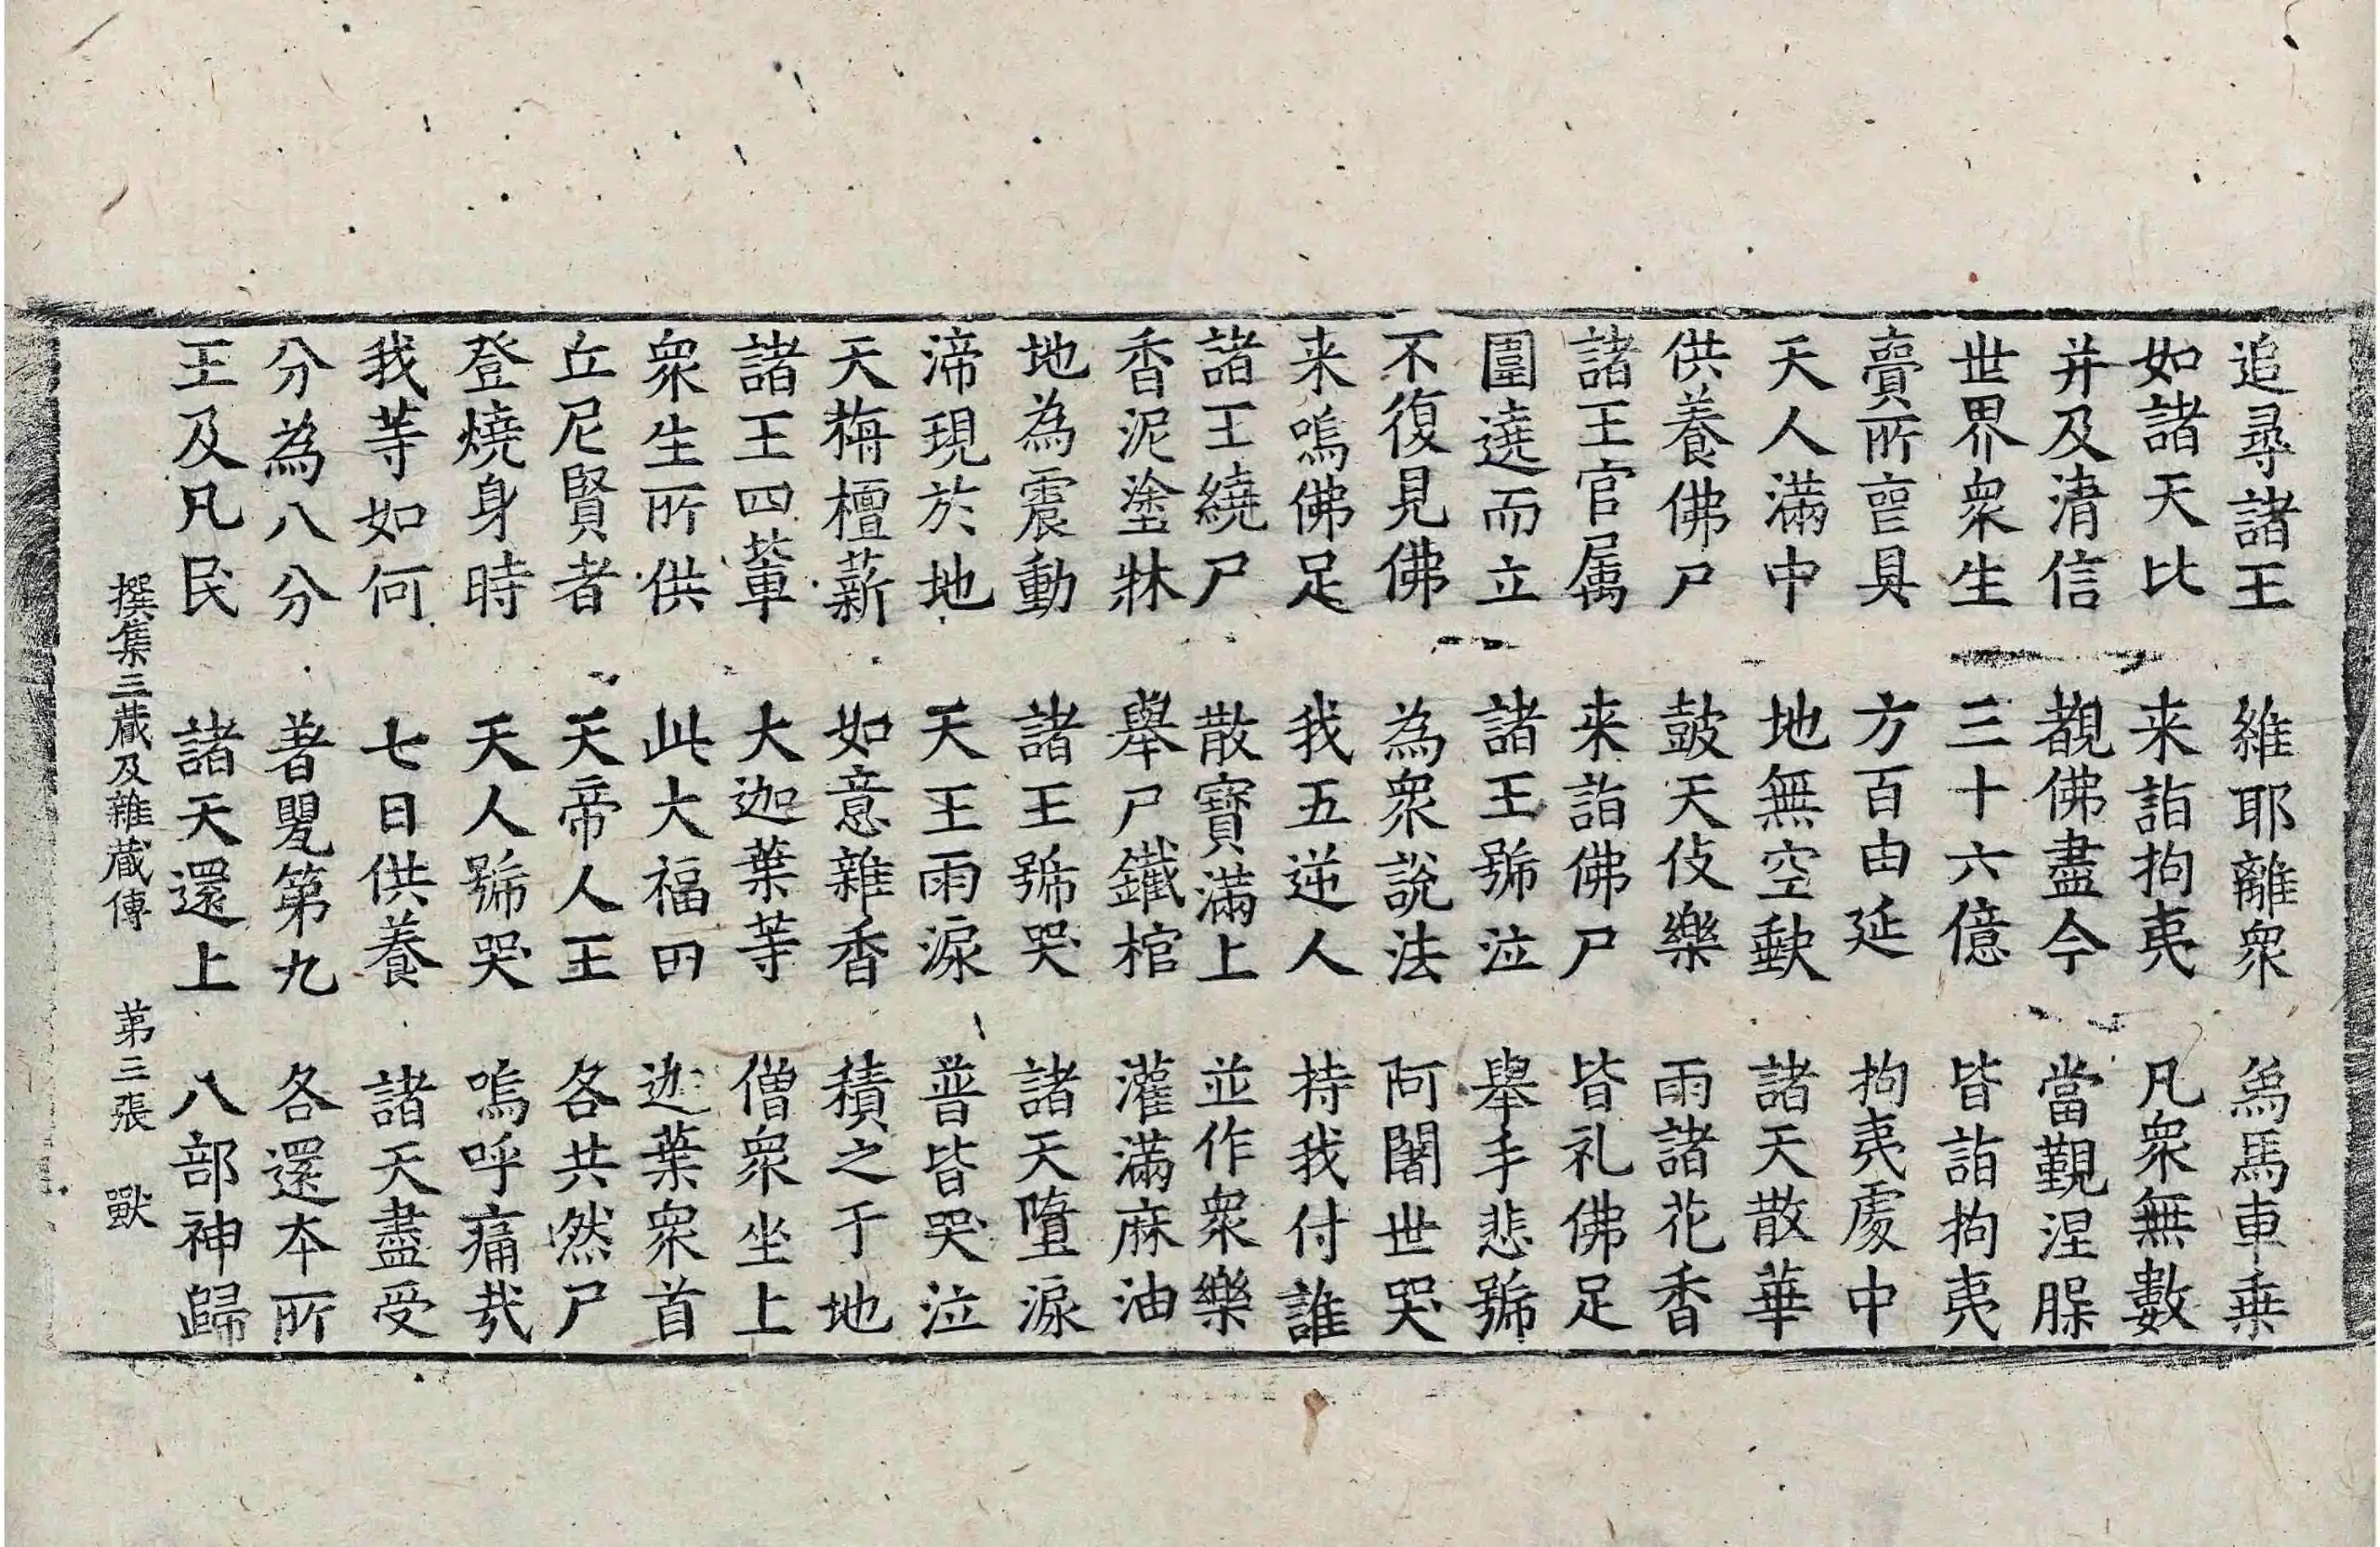 追尋諸王 維耶離衆 象馬車乗
如諸天比 来詣拘夷 凡衆無數
并及清信 覩佛盡今 當觀涅腂
世界衆生 三十六億 皆詣拘夷
賣所啻具 方百由延 拘夷處中
天人滿中 地無空缺 諸天散華
供養佛尸 鼓天伎樂 雨諸花香
諸王官属 来詣佛尸 皆礼佛足
圍遶而立 諸王號泣 舉手悲號
不復見佛 為衆說法 阿闍世哭
来嗚佛足 我五逆人 持我付誰
諸王繞尸 散寶滿上 並作衆樂
香泥塗牀 舉尸鐵棺 灌滿麻油
地為震動 諸王號哭 諸天墮淚
渧現於地 天王雨淚 普皆哭泣
天栴檀薪 如意雜香 積之于地
諸王四輩 大迦葉等 僧衆坐上
衆生所供 此大福田 迦葉衆首
丘尼賢者 天帝人王 各共然尸
登燒身時 天人號哭 嗚呼痛㢤
我等如何 七日供養 諸天盡受
分為八分 著甖第九 各還本所
王及凡民 諸天還上 八部神歸
撰集三藏及雜藏傳 第三張 獸